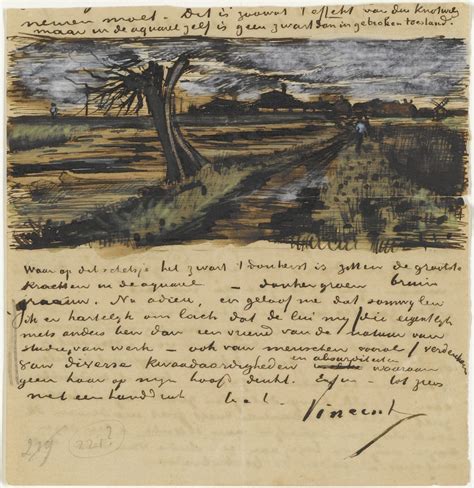 nemen moet. Dit is zoowat 't effekt van den Knotwilg
maar in de aquarel zelf is geen zwart dan in gebroken toestand.
Waar op dit schetsje het zwart 't donkerst is zitten de grootste
krachten in de aquarel – donkergroen bruin
graauw. Nu adieu, en geloof me dat somwijlen
ik er hartelijk om lach dat de lui mij (die eigenlijk
niets anders ben dan een vriend van de natuur van
studie, van werk – ook van menschen vooral) verdenken
van diverse kwaadaardigheden en absurditeiten waaraan
geen haar op mijn hoofd denkt. Enfin – tot ziens
met een handdruk
Vincent
221?